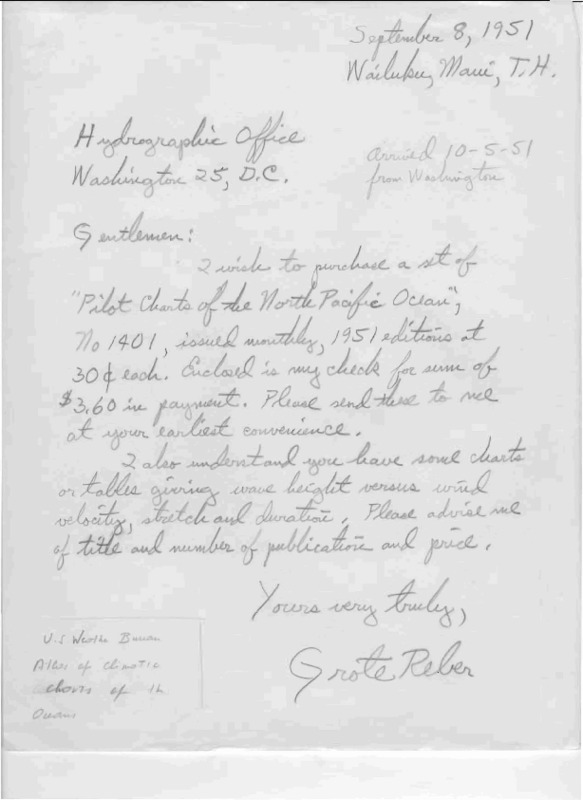 September 8, 1951
Wailuku, Maui, T.H.
Hydrographic Office
Washington 25, D.C.
Arrived 10-5-51
from Washington
Gentlemen:
I wish to purchase a set of
"Pilot Charts of the North Pacific Ocean",
No 1401, issued monthly, 1951 editions at
30¢ each. Enclosed is my check for sum of
$3.60 in payment. Please send these to me
at your earliest convenience.
I also understand you have some charts
or tables giving wave height versus wind
velocity, stretch and duration. Please advise me
of title and number of publication and price.
Yours very truly,
Grote Reber
U.S Weather Bureau
Atlas of climatic
charts of the
Oceans